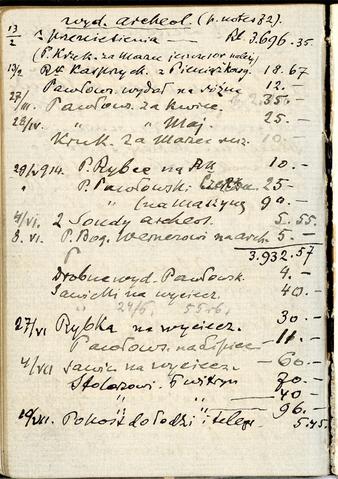 wyd. archeol. (p. notes 82).
13/2 z przeniesienia — Rb 3.696.35
(P. Kruk. za Marzec jeszcze
13/2 Rb Kasprzyk. z Pieniążkow. 18.67
Pawłows. wydał na różne 12.—
27/III. Pawłows. za kwiec. 35.—
28/IV. " " Maj. 25.—
Kruk za Marzec 10.—
29/V 914. P. Rybce na Rb 10.—
" P. Pawłowski Czerw. 25—
" (na maszynę 90.—
4/VI. 2 Sondy archeol. 5.55
8.VI. P. Bog. Wernerowi na arch. 5.—
3.932.57
Drobne wyd. Pawłowsk. 4.—
Sawicki na wyciecz. 40.—
" 24/6.
27/VI Rybka na wyciecz. 30.—
Pawłows. na Lipiec 11.—
4/VII Sawic. na wyciecz. —60.—
Stolarzowi. F witryn 70.—
" " —40.—
" " 96.—
VII. Pokost do łodzi i telegr. 5.45.